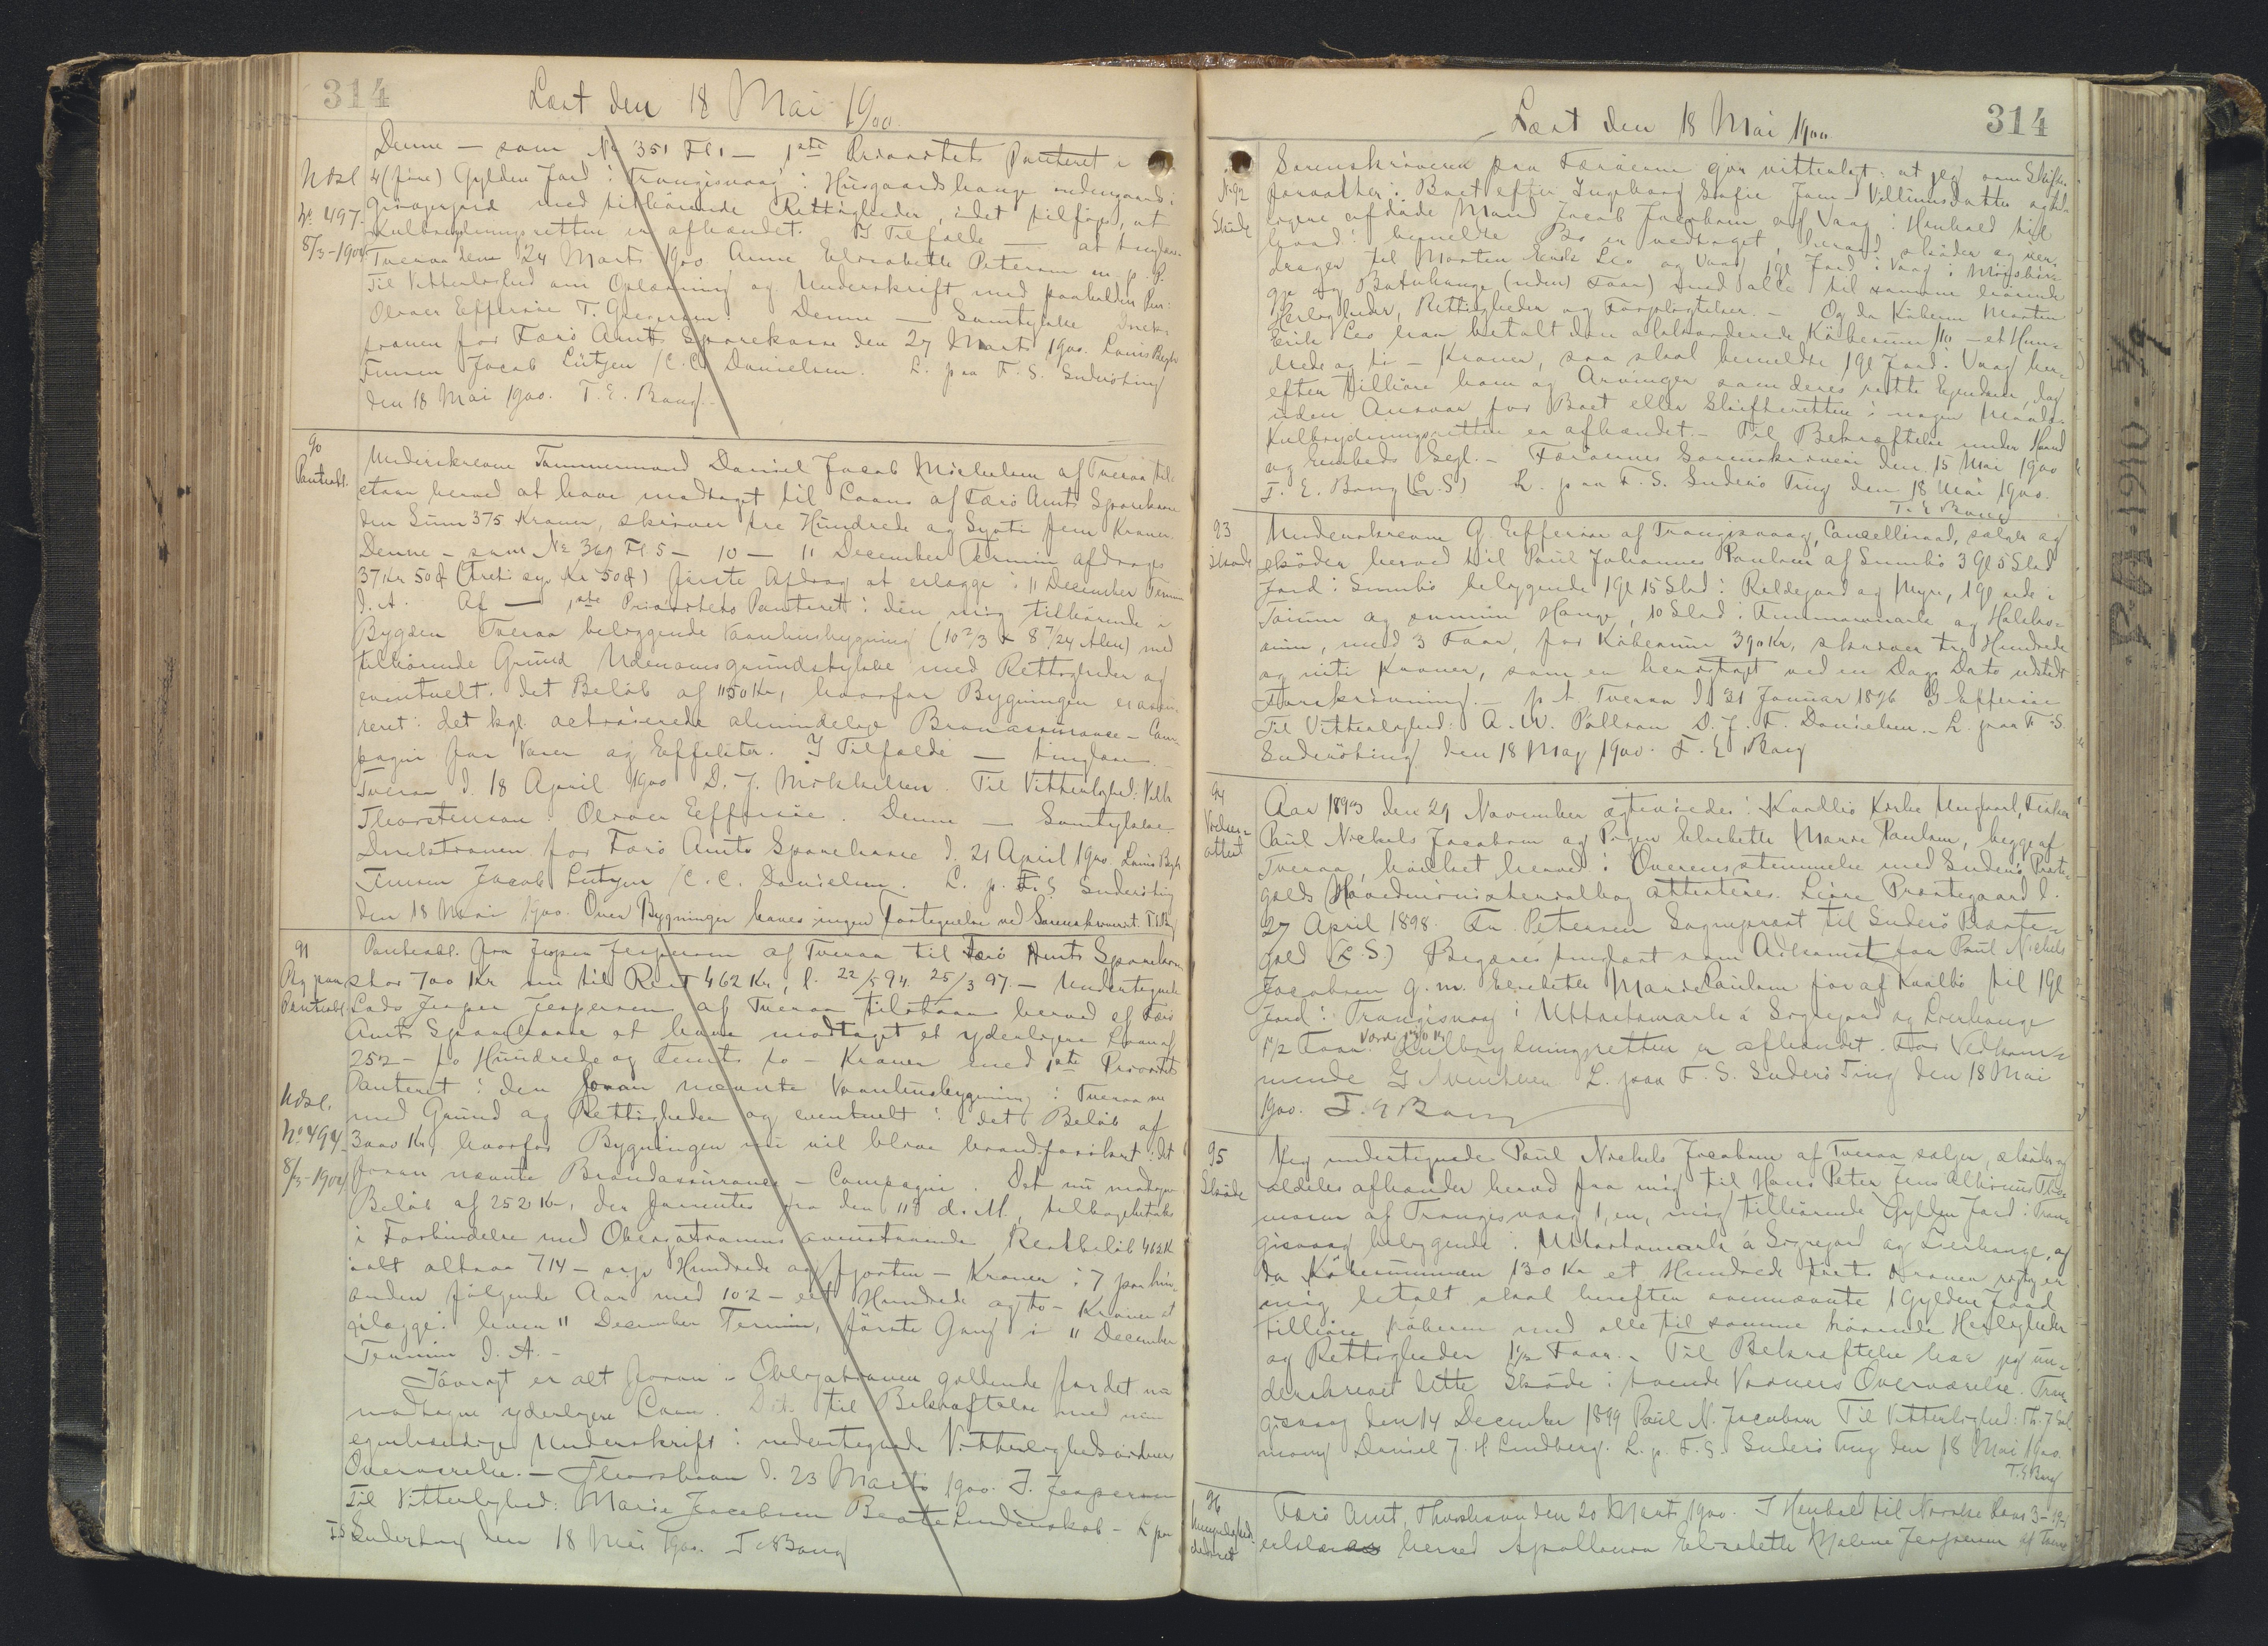 314
Læst den 18 Mai 1900.
Denne — som No 351 Fl 1 — 1ste Prioritets Panteret i
4 (fire) Gylden Jord i Trangisvaag i Husgaardshauge
med tilhörende Rettigheder, idet tilföjes, at
Kulbrydningsretten er afhændet. I Tilfælde — at tinglæse.
Tveraa den 24 Marts 1900. Anne Elisabeth Petersen m. p. P.
Til Vitterlighed om Oplæsning og Underskrift med paaholden Pen:
Oliver Effersöe T. Gregersen. Denne — Samtykke Direk-
tionen for Færö Amts Sparekasse den 27 Marts 1900. Louis Bergh
Jensen Jacob Lützen /C. C. Danielsen. L. paa F. S. Suderöting
den 18 Mai 1900. T. E. Bang
Udsl
No 497.
8/3-1904
90
Pantobl.
Underskrevne Tømmermand Daniel Jacob Mikkelsen af Tveraa til-
staar herved at have modtaget til Laans af Færö Amts Sparekasse
den Sum 375 Kroner, skriver tre Hundrede og Syvti fem Kroner.
Denne — som No 369 Fl 5 — 10 — 11 December Termin afdrages
37 Kr 50 Ø (Treti syv Kr 50 Ø) förste Afdrag at erlægge i 11 December Termin
d. A. Af — 1ste Prioritets Panteret i den mig tilhörende i
Bygden Tveraa beliggende Vaanhusbygning (10 2/3 x 8 7/24 Alen) med
tilhörende Grund Udenomsgrundstykke med Rettigheder og
eventuelt det Belöb af 1150 Kr, hvorfor Bygningen er assu-
reret i det kgl. octroierede almindelige Brandassurance-Com-
pagni for Varer og Effekter. I Tilfælde — tinglæse. —
Tveraa d. 18 April 1900 D. J. Mikkelsen. Til Vitterlighed: Valb.
Thorstensen. Oliver Effersöe. Denne — Samtykke.
Direktionen for Færö Amts Sparekasse d. 21 April 1900 Louis Bergh
Jensen Jacob Lützen /C. C. Danielsen. L. p. F. S. Suderöting
den 18 Mai 1900. Over Bygninger haves ingen Fortegnelse ved Sorenskriveriet. T. E. Bang
91
Pantobl
Pantobl. fra Jesper Jespersen af Tveraa til Færö Amts Sparekasse
stor 700 Kr nu til Rest 462 Kr, l. 22/5 94. 25/3 97. — Undertegnede
Jesper Jespersen af Tveraa tilstaar herved af Færö
Amts Sparekasse at have modtaget et yderligere Laan af
252 — to Hundrede og femti to — Kroner med 1ste Prioritets
Panteret i den foran nævnte Vaanhusbygning i Tveraa
med Grund og Rettigheder og eventuelt i det Belöb af
3000 Kr, hvorfor Bygningen nu vil blive brandforsikret i det
foran nævnte Brandassurance-Compagni. Det nu modtagne
Belöb af 252 Kr, der forrentes fra den 11 d. M., tilbagebetales
i Forbindelse med Obligationens ovenstaaende Restbelöb 462 Kr
ialt altsaa 714 — syv Hundrede og fjorten — Kroner i 7 paa hin-
anden fölgende Aar med 102 — eet Hundrede og to — Kroner at
erlægge i hver 11 December Termin, förste Gang i 11 December
Termin d. A. —
Iövrigt er alt foran i Obligationen gældende for det nu
modtagne yderligere Laan. Det til Bekræftelse med min
egenhændige Underskrift i undertegnede Vitterlighedsvidners
Overværelse. — Thorshavn d. 23 Marts 1900. J. Jespersen
Til Vitterlighed: Marie Jacobsen Beate Lindenskob — L. paa
F. S. Suderöting den 18 Mai 1900. T E Bang
Udsl.
No 494
8/3-1904
Læst den 18 Mai 1900
314
N. 92
Sköde
Sorenskriveren paa Færöerne gör vitterligt: at jeg som Skifte-
forvalter i Boet efter Ingeborg Sofie Joen-Villiumsdatter og tid-
ligere afdöde Mand Jacob Jacobsen af Vaag i Henhold til
hvad i bemeldte Bo er vedtaget, herved sköder og over-
drager til Morten Erik Leo af Vaag 1 Gl Jord i Vaag i
og Botnhauge (uden Faar) med alle til samme hörende
Herligheder, Rettigheder og Forpligtelser. — Og da Köberen Morten
Erik Leo har betalt den accorderede Købesum 110 — et Hun-
drede og ti — Kroner, saa skal bemeldte 1 Gl Jord i Vaag her-
efter tilhöre ham og Arvinger som deres rette Ejendom, dog
uden Ansvar for Boet eller Skifteretten i nogen Maade.
Kulbrydningsretten er afhændet. — Til Bekræftelse under Haand
og Embeds Segl. — Færöernes Sorenskriveri den 15 Mai 1900
T. E. Bang (L. S.) L. paa F. S. Suderö Ting den 18 Mai 1900.
T. E. Bang
93
Sköde
Underskrevne G. Effersöe af Trangisvaag, Cancelliraad, sælger og
sköder herved til Poul Johannes Poulsen af Sumbö 3 Gl 5 Skd
Jord i Sumbö beliggende 1 Gl 15 Skd i Reldegaard og Myre, 1 Gl
og Hauge, 10 Skd i og
med 3 Faar, for Købesum 390 Kr, skriver tre Hundrede
og niti Kroner, som er berigtiget ved en Dags Dato udstedt
Forskrivning. — p. t. Tveraa d. 31 Januar 1896 G Effersöe
Til Vitterlighed: A. W. Poulsen D. J. F. Danielsen. — L. paa F. S.
Suderöting den 18 Maj 1900. T. E Bang
94
Vielses-
attest
Aar 1893 den 29 November ægteviedes i Kvalbö Kirke Ungkarl, Fisker
Poul Nickels Jacobsen og Pigen Elsebeth Marie Poulsen, begge af
Tveraa, hvilket herved i Overensstemmelse med Suderö Præste-
gælds Hovedministerialbog attesteres. Præstegaard d.
27 April 1898. Fr. Petersen Sognepræst til Suderö Præste-
gæld (L. S.) Begæres tinglæst som Adkomst for Poul Nickels
Jacobsen g. m. Elsebeth Marie Poulsen för af Kvalbö til 1 Gl
Jord i Trangisvaag i Uttastamark á Sögnejord og Lierhauge
1 1/2 Faar. Værdi 130 Kr. Kulbrydningsretten er afhændet. For Vedkom-
mende L. paa F. S. Suderö Ting den 18 Mai
1900. T. E Bang
95
Sköde
Jeg undertegnede Poul Nickels Jacobsen af Tveraa sælger, sköder og
aldeles afhænder herved fra mig til Hans Peter Jens Albinus Tho-
masen af Trangisvaag 1, en, mig tilhörende Gylden Jord i Tran-
gisvaag beliggende i Uttastamark á Sögnejord og Lierhauge, og
da Købesummen 130 Kr et Hundrede treti Kroner rigtig er
mig betalt skal herefter ovennævnte 1 Gylden Jord
tilhöre köberen med alle til samme hörende Herligheder
og Rettigheder 1 1/2 Faar. — Til Bekræftelse har jeg un-
derskrevet dette Sköde i tvende Vidners Overværelse. Tran-
gisvaag den 14 December 1899 Poul N. Jacobsen Til Vitterlighed: Th. J Sal-
mony Daniel J. H Lindberg. L. p. F. S. Suderö Ting den 18 Mai 1900.
T. E Bang
96
Myndigheds
dekret
Færö Amt, Thorshavn den 20 Marts 1900. I Henhold til Norske Lovs 3-19-
erklæres herved Apollonia Elisabeth Malene Jespersen af Tveraa
R. 61. 1910 - 5/9.